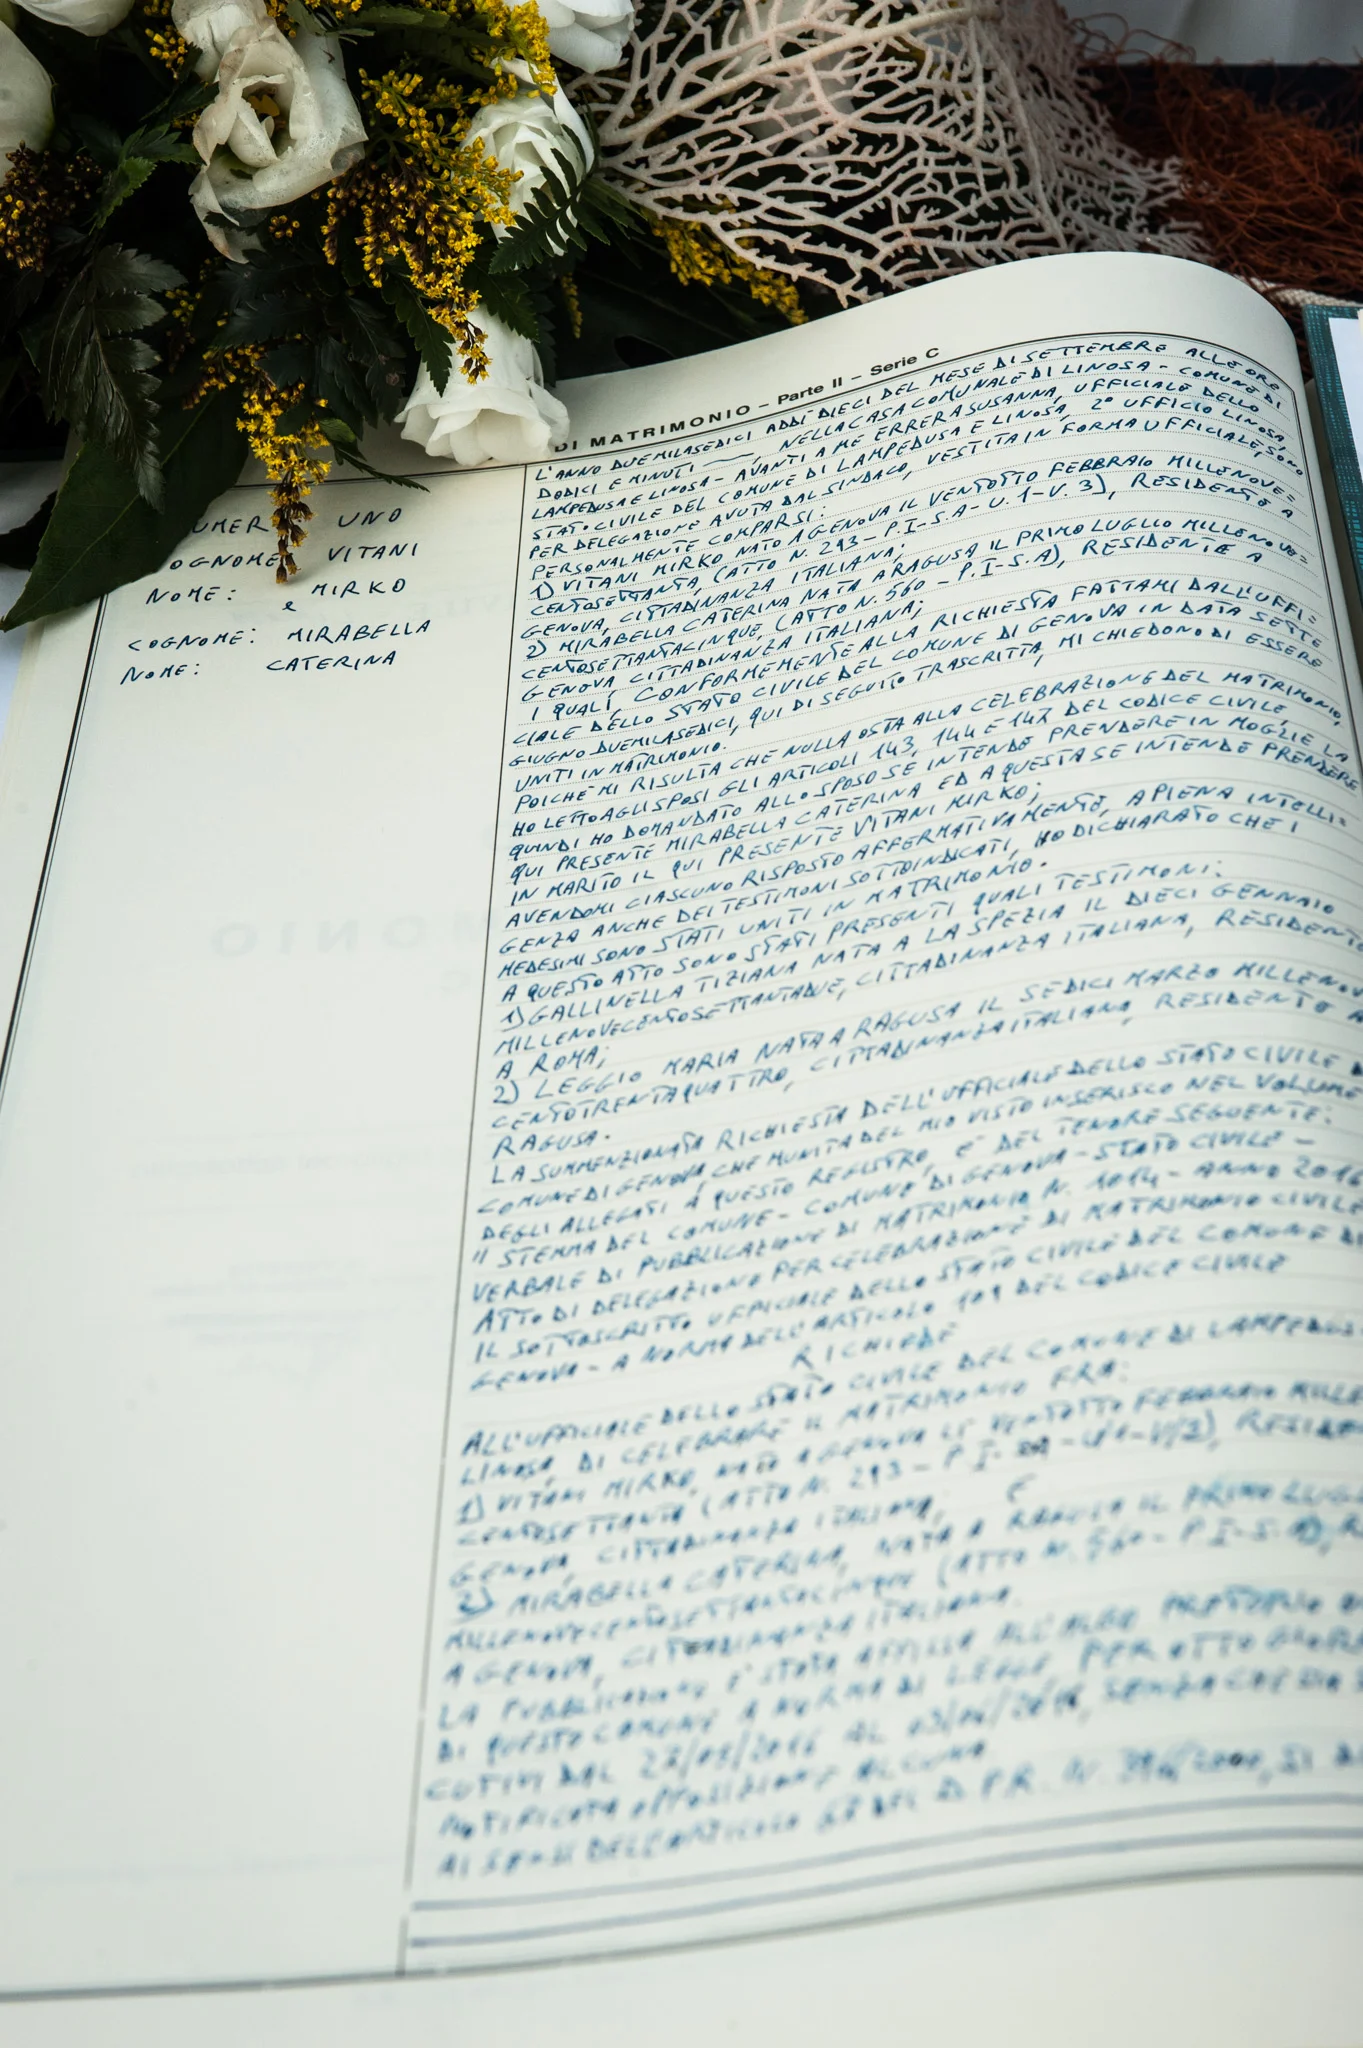 DI MATRIMONIO – Parte II – Serie C
UNO
COGNOME VITANI
NOME: MIRKO
e
COGNOME: MIRABELLA
NOME: CATERINA
L'ANNO DUEMILASEDICI ADDÌ DIECI DEL MESE DI SETTEMBRE ALLE ORE
DODICI E MINUTI —, NELLA CASA COMUNALE DI LINOSA - COMUNE DI
LAMPEDUSA E LINOSA - AVANTI A ME ERRERA SUSANNA, UFFICIALE DELLO
STATO CIVILE DEL COMUNE DI LAMPEDUSA E LINOSA, 2° UFFICIO LINOSA,
PER DELEGAZIONE AVUTA DAL SINDACO, VESTITA IN FORMA UFFICIALE, SONO
PERSONALMENTE COMPARSI:
1) VITANI MIRKO NATO A GENOVA IL VENTOTTO FEBBRAIO MILLENOVE=
CENTOSETTANTA, (ATTO N. 293 - P.I - S.A - U. 1 - V. 3), RESIDENTE A
GENOVA, CITTADINANZA ITALIANA;
2) MIRABELLA CATERINA NATA A RAGUSA IL PRIMO LUGLIO MILLENOVE=
CENTOSETTANTACINQUE, (ATTO N. 560 - P.I - S.A), RESIDENTE A
GENOVA CITTADINANZA ITALIANA;
I QUALI, CONFORMEMENTE ALLA RICHIESTA FATTAMI DALL'UFFI=
CIALE DELLO STATO CIVILE DEL COMUNE DI GENOVA IN DATA SETTE
GIUGNO DUEMILASEDICI, QUI DI SEGUITO TRASCRITTA, MI CHIEDONO DI ESSERE
UNITI IN MATRIMONIO.
POICHÉ MI RISULTA CHE NULLA OSTA ALLA CELEBRAZIONE DEL MATRIMONIO,
HO LETTO AGLI SPOSI GLI ARTICOLI 143, 144 E 147 DEL CODICE CIVILE,
QUINDI HO DOMANDATO ALLO SPOSO SE INTENDE PRENDERE IN MOGLIE LA
QUI PRESENTE MIRABELLA CATERINA ED A QUESTA SE INTENDE PRENDERE
IN MARITO IL QUI PRESENTE VITANI MIRKO;
AVENDOMI CIASCUNO RISPOSTO AFFERMATIVAMENTE, A PIENA INTELLI=
GENZA ANCHE DEI TESTIMONI SOTTOINDICATI, HO DICHIARATO CHE I
MEDESIMI SONO STATI UNITI IN MATRIMONIO.
A QUESTO ATTO SONO STATI PRESENTI QUALI TESTIMONI:
1) GALLINELLA TIZIANA NATA A LA SPEZIA IL DIECI GENNAIO
MILLENOVECENTOSETTANTADUE, CITTADINANZA ITALIANA, RESIDENTE
A ROMA;
2) LEGGIO MARIA NATA A RAGUSA IL SEDICI MARZO MILLENOVE
CENTOTRENTAQUATTRO, CITTADINANZA ITALIANA, RESIDENTE A
RAGUSA.
LA SUMMENZIONATA RICHIESTA DELL'UFFICIALE DELLO STATO CIVILE
COMUNE DI GENOVA, CHE MUNITA DEL MIO VISTO INSERISCO NEL VOLUME
DEGLI ALLEGATI A QUESTO REGISTRO, È DEL TENORE SEGUENTE:
" STEMMA DEL COMUNE - COMUNE DI GENOVA - STATO CIVILE -
VERBALE DI PUBBLICAZIONE DI MATRIMONIO N. 1014 - ANNO 2016
ATTO DI DELEGAZIONE PER CELEBRAZIONE DI MATRIMONIO CIVILE
IL SOTTOSCRITTO UFFICIALE DELLO STATO CIVILE DEL COMUNE DI
GENOVA - A NORMA DELL'ARTICOLO 109 DEL CODICE CIVILE
RICHIEDE
ALL'UFFICIALE DELLO STATO CIVILE DEL COMUNE DI LAMPEDUSA
LINOSA, DI CELEBRARE IL MATRIMONIO FRA:
1) VITANI MIRKO, NATO A GENOVA IL VENTOTTO FEBBRAIO
CENTOSETTANTA (ATTO N. 293 - P. I -
GENOVA, CITTADINANZA ITALIANA, E
2) MIRABELLA CATERINA, NATA A RAGUSA IL PRIMO
MILLENOVECENTOSETTANTACINQUE (ATTO N. 560 - P.I - S.A),
A GENOVA, CITTADINANZA ITALIANA.
LA PUBBLICAZIONE È STATA AFFISSA ALL'ALBO PRETORIO
DI QUESTO COMUNE A NORMA DI LEGGE, PER OTTO GIORNI
DAL AL SENZA CHE SIA
NOTIFICATA OPPOSIZIONE ALCUNA
AI SENSI DELL'ARTICOLO DEL D.P.R. N.